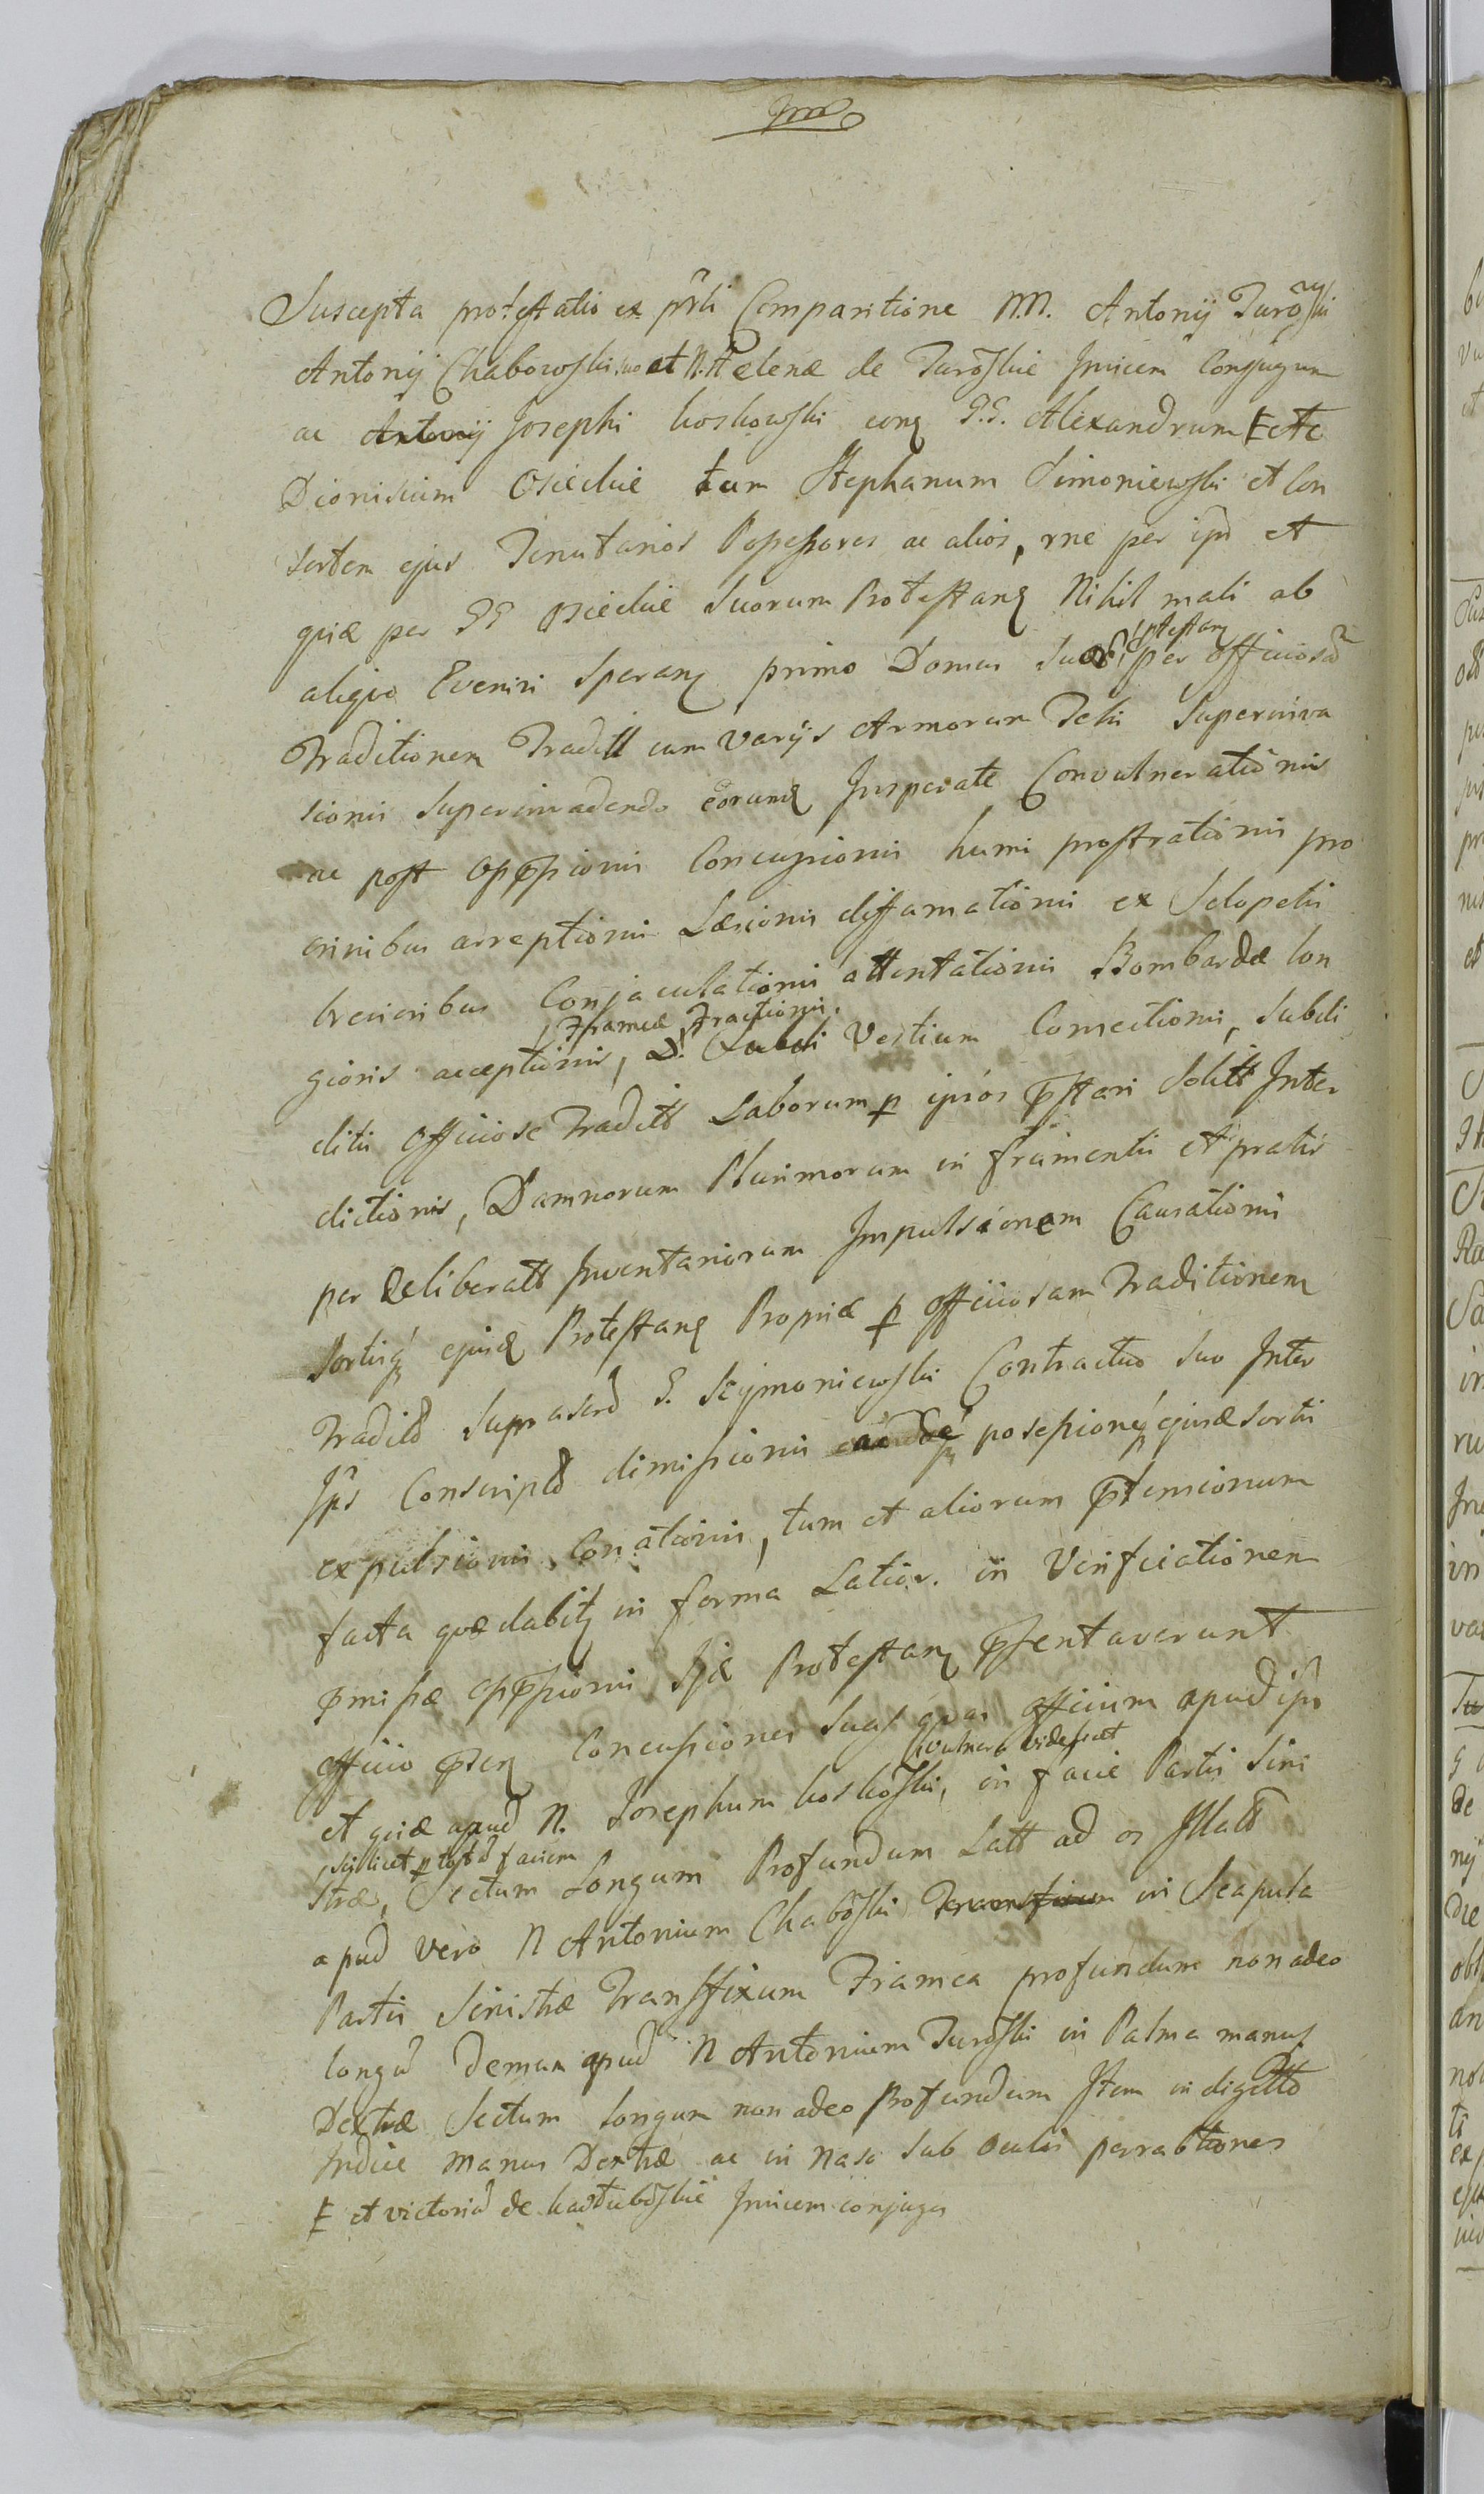 Suscepta protestatio ex prli Comparitione NN. Antonij Turoski
Antonij Chabowski suo et N. Helenæ de Turoskie Invicem Conjugum
ac Antonij Josephi koskowski conq GG. Alexandrum et
Dionisium Osieckie tum Stephanum Simoniewski et Con
sortem ejus Tenutarios Possessores ac alios, rne per ipō et
quiæ per GG Osieckie Suorum Protestanq Nihil mali ab
aliquo Evenire Speranq primo Domus Suor, ptestanq per officiosā
Traditionem Traditt cum varijs Armorum Telis Superinva
sionis Superinvadendo eōrumq Insperate Convulnerationis
ac post oppssionis Concussionis humi prostrationis pro
crinibus arreptionis Læsionis diffamationis ex Sclopetis
brevioribus Conjaculationis attentationis Bombardæ lon
gioris acceptionis, Frameæ Fractionis, Vestium Consectionis, Subdi
ditis officiose Tradits Laborum p ipsos pstari Solitt Inter
dictionis, Damnorum Plurimorum in frumentis et pratis
per Deliberatt Inventariorum Impulsionem Causationis
Sortisq ejusq Protestanq Propriæ p officiosam Traditionem
Traditō Suprascrō G. Szymoniewski Contractus Suo Inter
Ips Conscriptō dimissionis possessioneq ejusæ Sortis
expulsionis Conationis, tum et aliorum ptensionum
facta quæ dabitq in forma Latior. in Verificationem
pmissæ oppssionis Sæ Protestanq psentaverunt
officio psenq Concussiones Suas quas officium apud ips
et quiæ apud N. Josephum koskoski, vulnera vid in facie Partis Sini
stræ, scilicet p totā faciem Sectum Longum Profundum Latt ad os Illatt
apud vero N Antonium Chaboski Transfixum in Scapula
Partis Sinistræ Transfixum Framea profundum non adeo
longū Demum apud N Antonium Turoski in Palma manus
Dextræ Sectum longum non adeo Profundum Item in digitto
Indice manus Dextræ ac in Naso Sub Oculis
et victoriā de Invicem conjuges